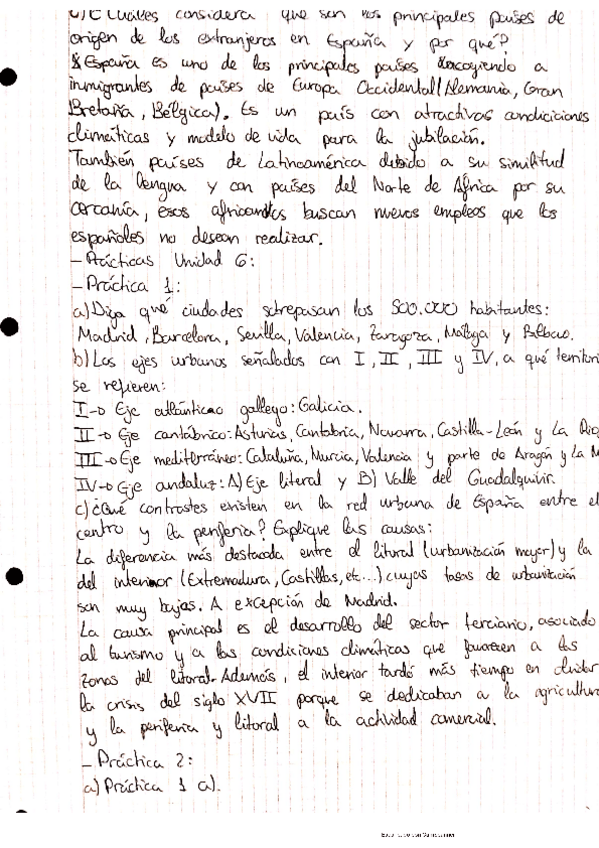 c) ¿Cuáles considera que son los principales países de
origen de los extranjeros en España y por qué?
España es uno de los principales países acogiendo a
inmigrantes de países de Europa Occidental (Alemania, Gran
Bretaña, Bélgica). Es un país con atractivas condiciones
climáticas y modelo de vida para la jubilación.
También países de Latinoamérica debido a su similitud
de la lengua y con países del Norte de África por su
cercanía, esos africanos buscan nuevos empleos que los
españoles no desean realizar.
- Prácticas Unidad 6:
- Práctica 1:
a) Diga qué ciudades sobrepasan los 500.000 habitantes:
Madrid, Barcelona, Sevilla, Valencia, Zaragoza, Málaga y Bilbao.
b) Los ejes urbanos señalados con I, II, III y IV, a qué territori
se refieren:
I → Eje atlántico gallego: Galicia.
II → Eje cantábrico: Asturias, Cantabria, Navarra, Castilla-León y La Rio
III → Eje mediterráneo: Cataluña, Murcia, Valencia y parte de Aragón y La M
IV → Eje andaluz: A) Eje literal y B) Valle del Guadalquivir.
c) ¿Qué contrastes existen en la red urbana de España entre el
centro y la periferia? Explique las causas:
La diferencia más destacada entre el litoral (urbanización mayor) y la
del interior (Extremadura, Castillas, etc...) cuyas tasas de urbanización
son muy bajas. A excepción de Madrid.
La causa principal es el desarrollo del sector terciario, asociado
al turismo y a las condiciones climáticas que favorecen a las
zonas del litoral. Además, el interior tardó más tiempo en
la crisis del siglo XVII porque se dedicaban a la agricultura
y la periferia y litoral a la actividad comercial.
- Práctica 2:
a) Práctica 1 a).
Escaneado con CamScanner